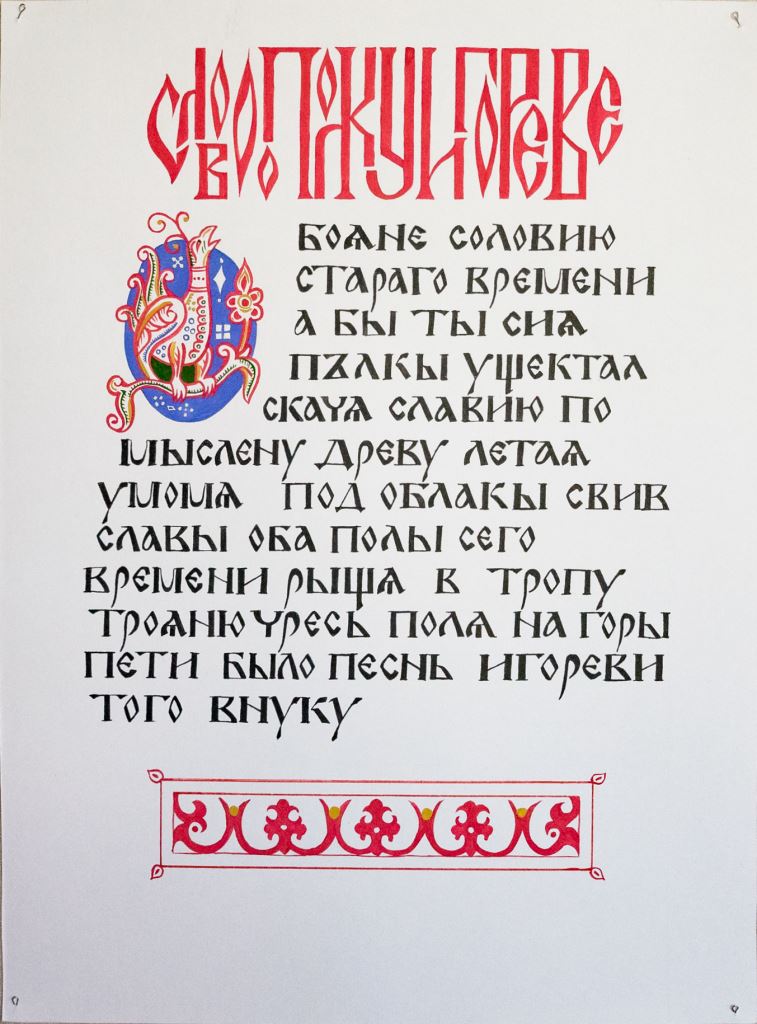 СЛОВО О ПОЛКУ ИГОРЕВЕ
О БОѦНЕ СОЛОВИЮ
СТАРАГО ВРЕМЕНИ
А БЫ ТЫ СИѦ
ПЪЛКЫ УЩЕКТАЛ
СКАЧѦ СЛАВИЮ ПО
МЫСЛЕНУ ДРЕВУ ЛЕТАѦ
УМОМѦ ПОД ОБЛАКЫ СВИВ
СЛАВЫ ОБА ПОЛЫ СЕГО
ВРЕМЕНИ РЫЩѦ В ТРОПУ
ТРОѦНЮ ЧРЕСЬ ПОЛѦ НА ГОРЫ
ПЕТИ БЫЛО ПЕСНЬ ИГОРЕВИ
ТОГО ВНУКУ